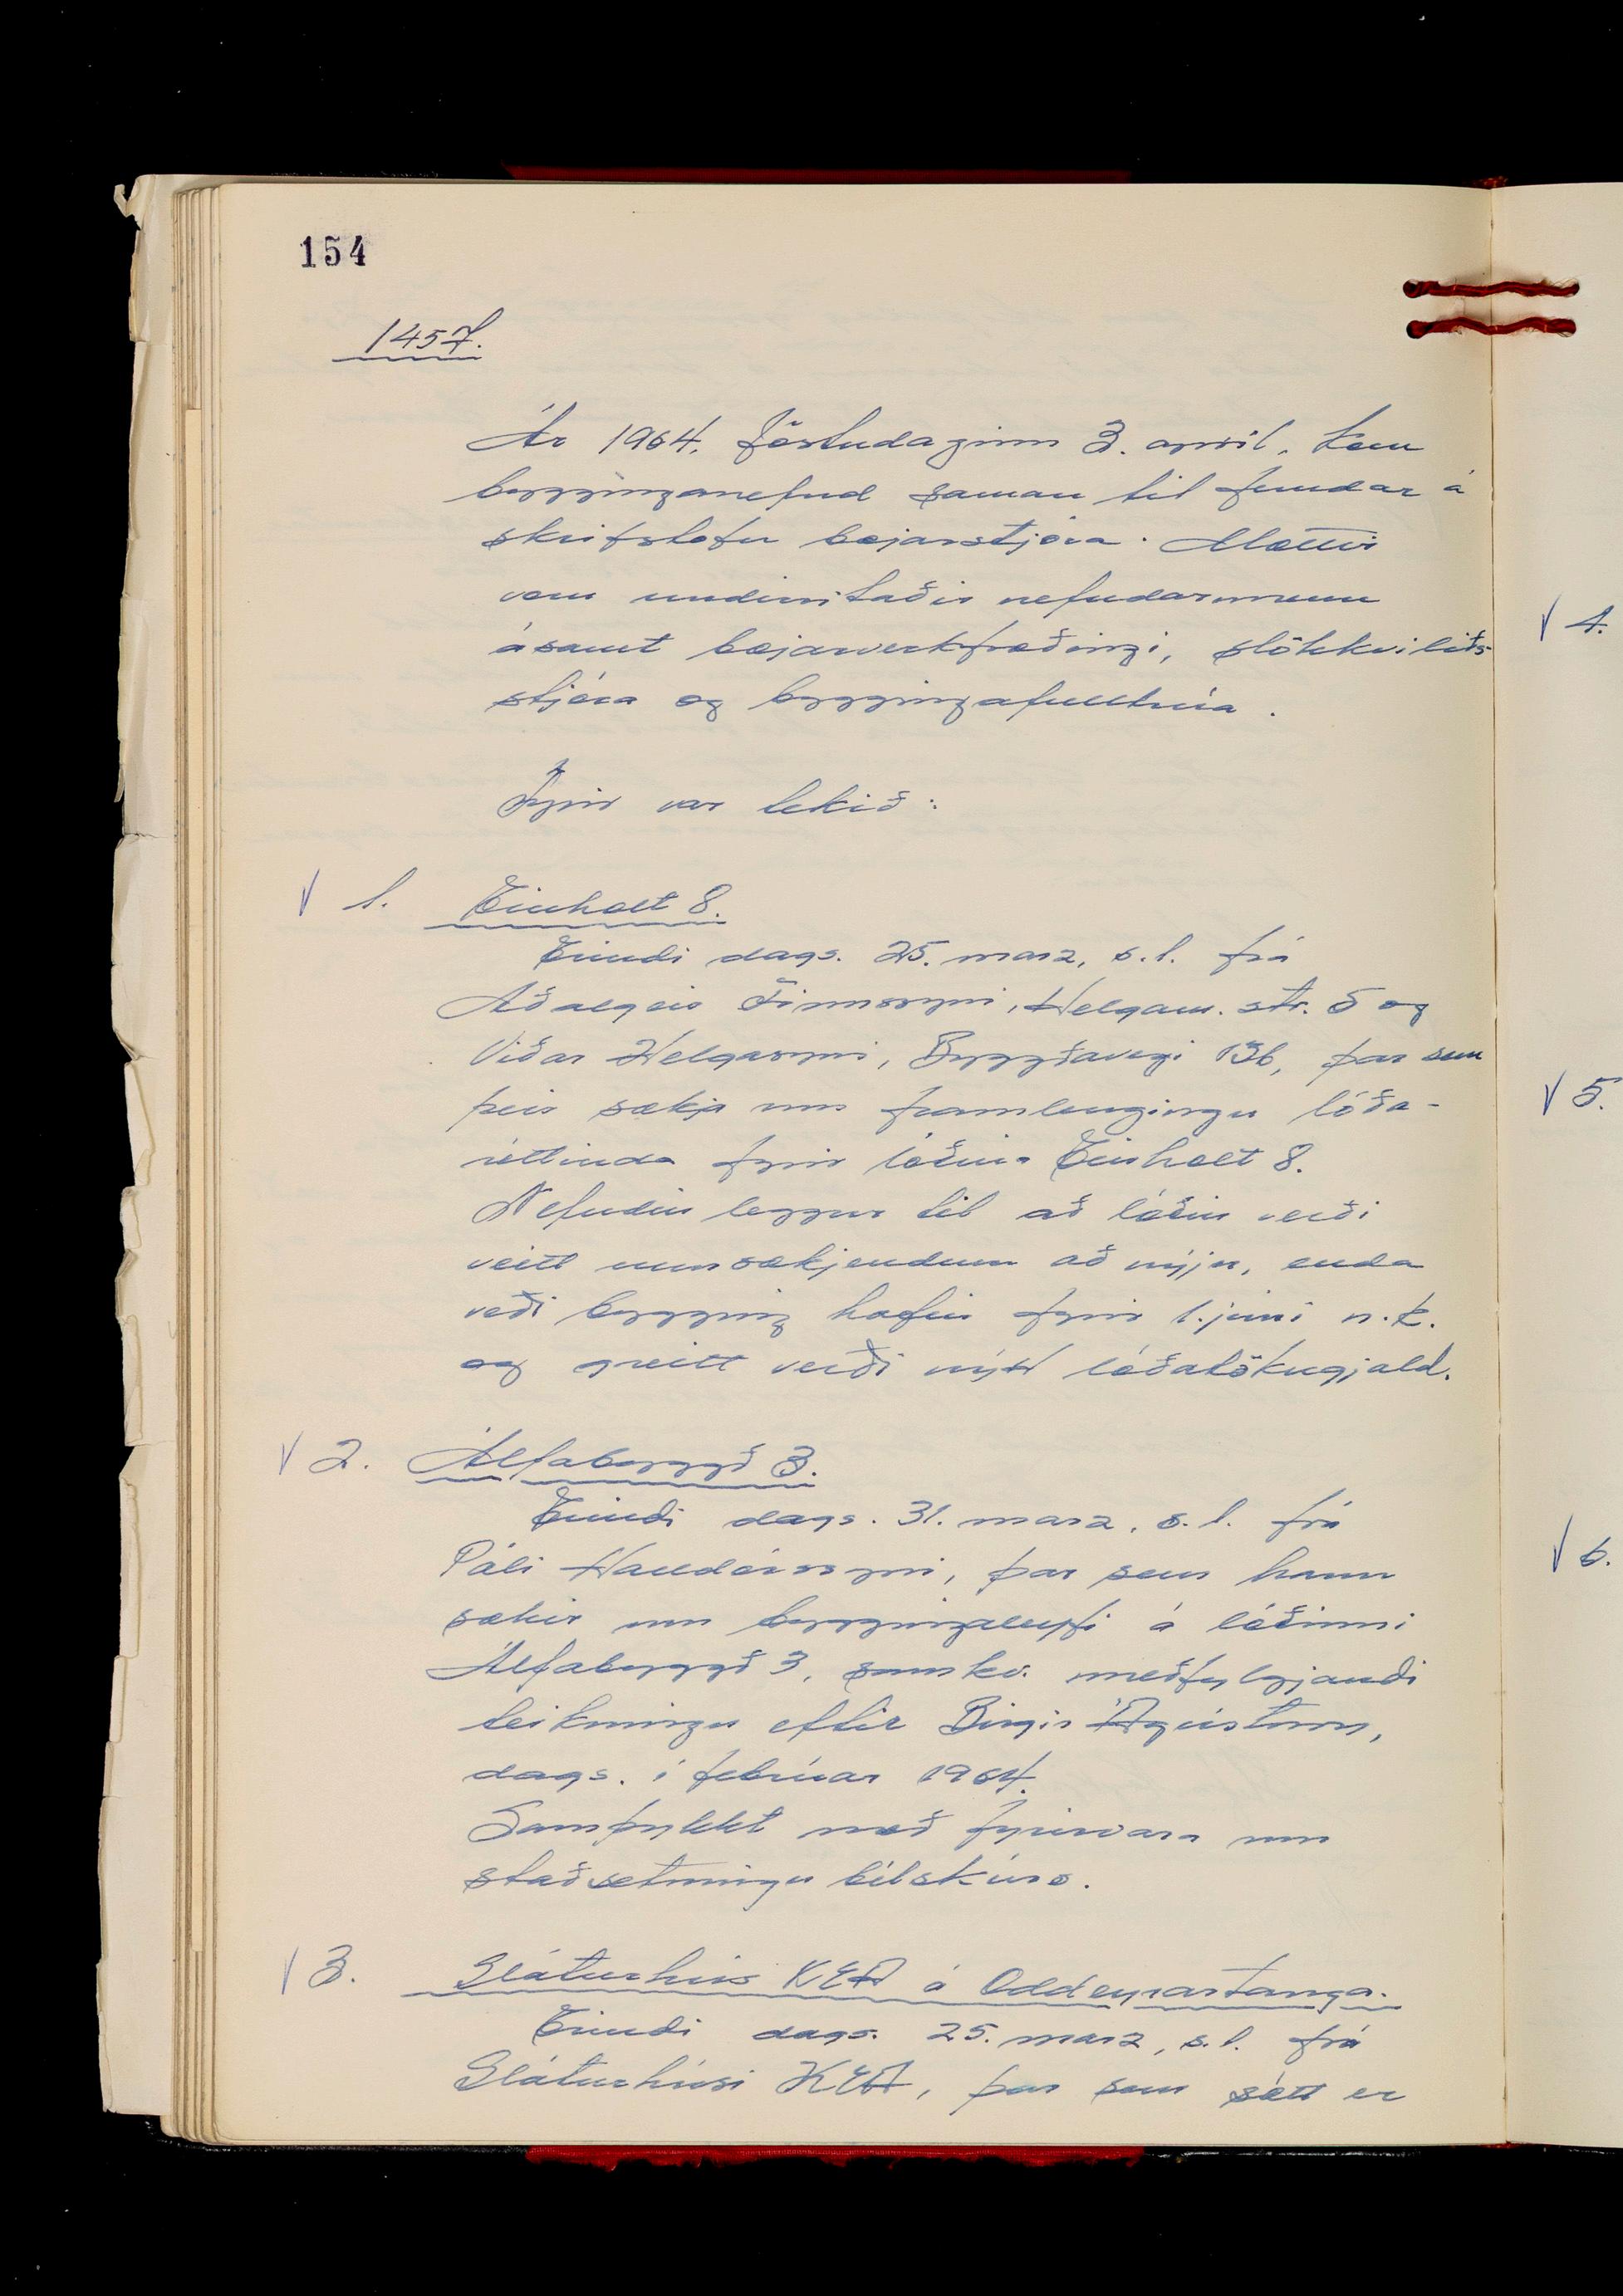 154
1457.
Ár 1964, föstudaginn 3. apríl, kom
bygginganefnd saman til fundar á
skrifstofu bæjarstjóra. Mættir
voru undirritaðir nefndarmenn
ásamt bæjarverkfræðingi, slökkviliðs-
stjóra og byggingafulltrúa.
Fyrir var tekið:
V 1. Einholt 8.
Erindi dags. 25. marz, s.l. frá
Aðalgeir Finnssyni, Helgam. str. 5 og
Viðar Helgasyni, Byggðavegi 136, þar sem
þeir sækja um framlengingu lóða-
réttinda fyrir lóðina Einholt 8.
Nefndin leggur til að lóðin verði
veitt umsækjendum að nýju, enda
veði bygging hafin fyrir 1. júní n.k.
og greitt verði nýtt lóðatökugjald.
V 2. Álfabyggð 3.
Erindi dags. 31. marz, s.l. frá
Páli Halldórssyni, þar sem hann
sækir um byggingaleyfi á lóðinni
Álfabyggð 3, samkv. meðfylgjandi
teikningu eftir Birgir Ágústsson,
dags. í febrúar 1964.
Samþykkt með fyrirvara um
staðsetningu bílskúrs.
V 3. Sláturhús KEA á Oddeyrartanga.
Erindi dags. 25. marz, s.l. frá
Sláturhúsi KEA, þar sem sótt er
V 4.
V 5.
V 6.